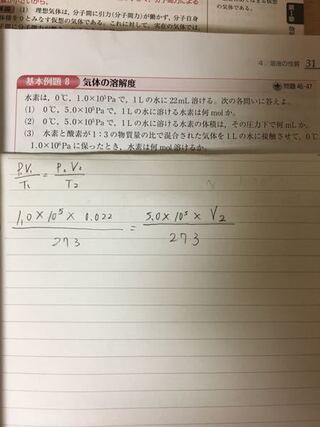 (1) 理想気体は、分子間に引力(分子間力)が働かず、分子自身
4. 溶液の性質 31
基本例題 8 気体の溶解度 問題 46・47
水素は、0℃、1.0×10⁵Paで、1Lの水に22mL溶ける。次の各問いに答えよ。
(1) 0℃、5.0×10⁵Paで、1Lの水に溶ける水素は何molか。
(2) 0℃、5.0×10⁵Paで、1Lの水に溶ける水素の体積は、その圧力下で何mLか。
(3) 水素と酸素が1:3の物質量の比で混合された気体を1Lの水に接触させて、0℃、
1.0×10⁶Paに保ったとき、水素は何mol溶けるか。
P₁V₁/T₁ = P₂V₂/T₂
1.0×10⁵×0.022/273 = 5.0×10⁵×V₂/273